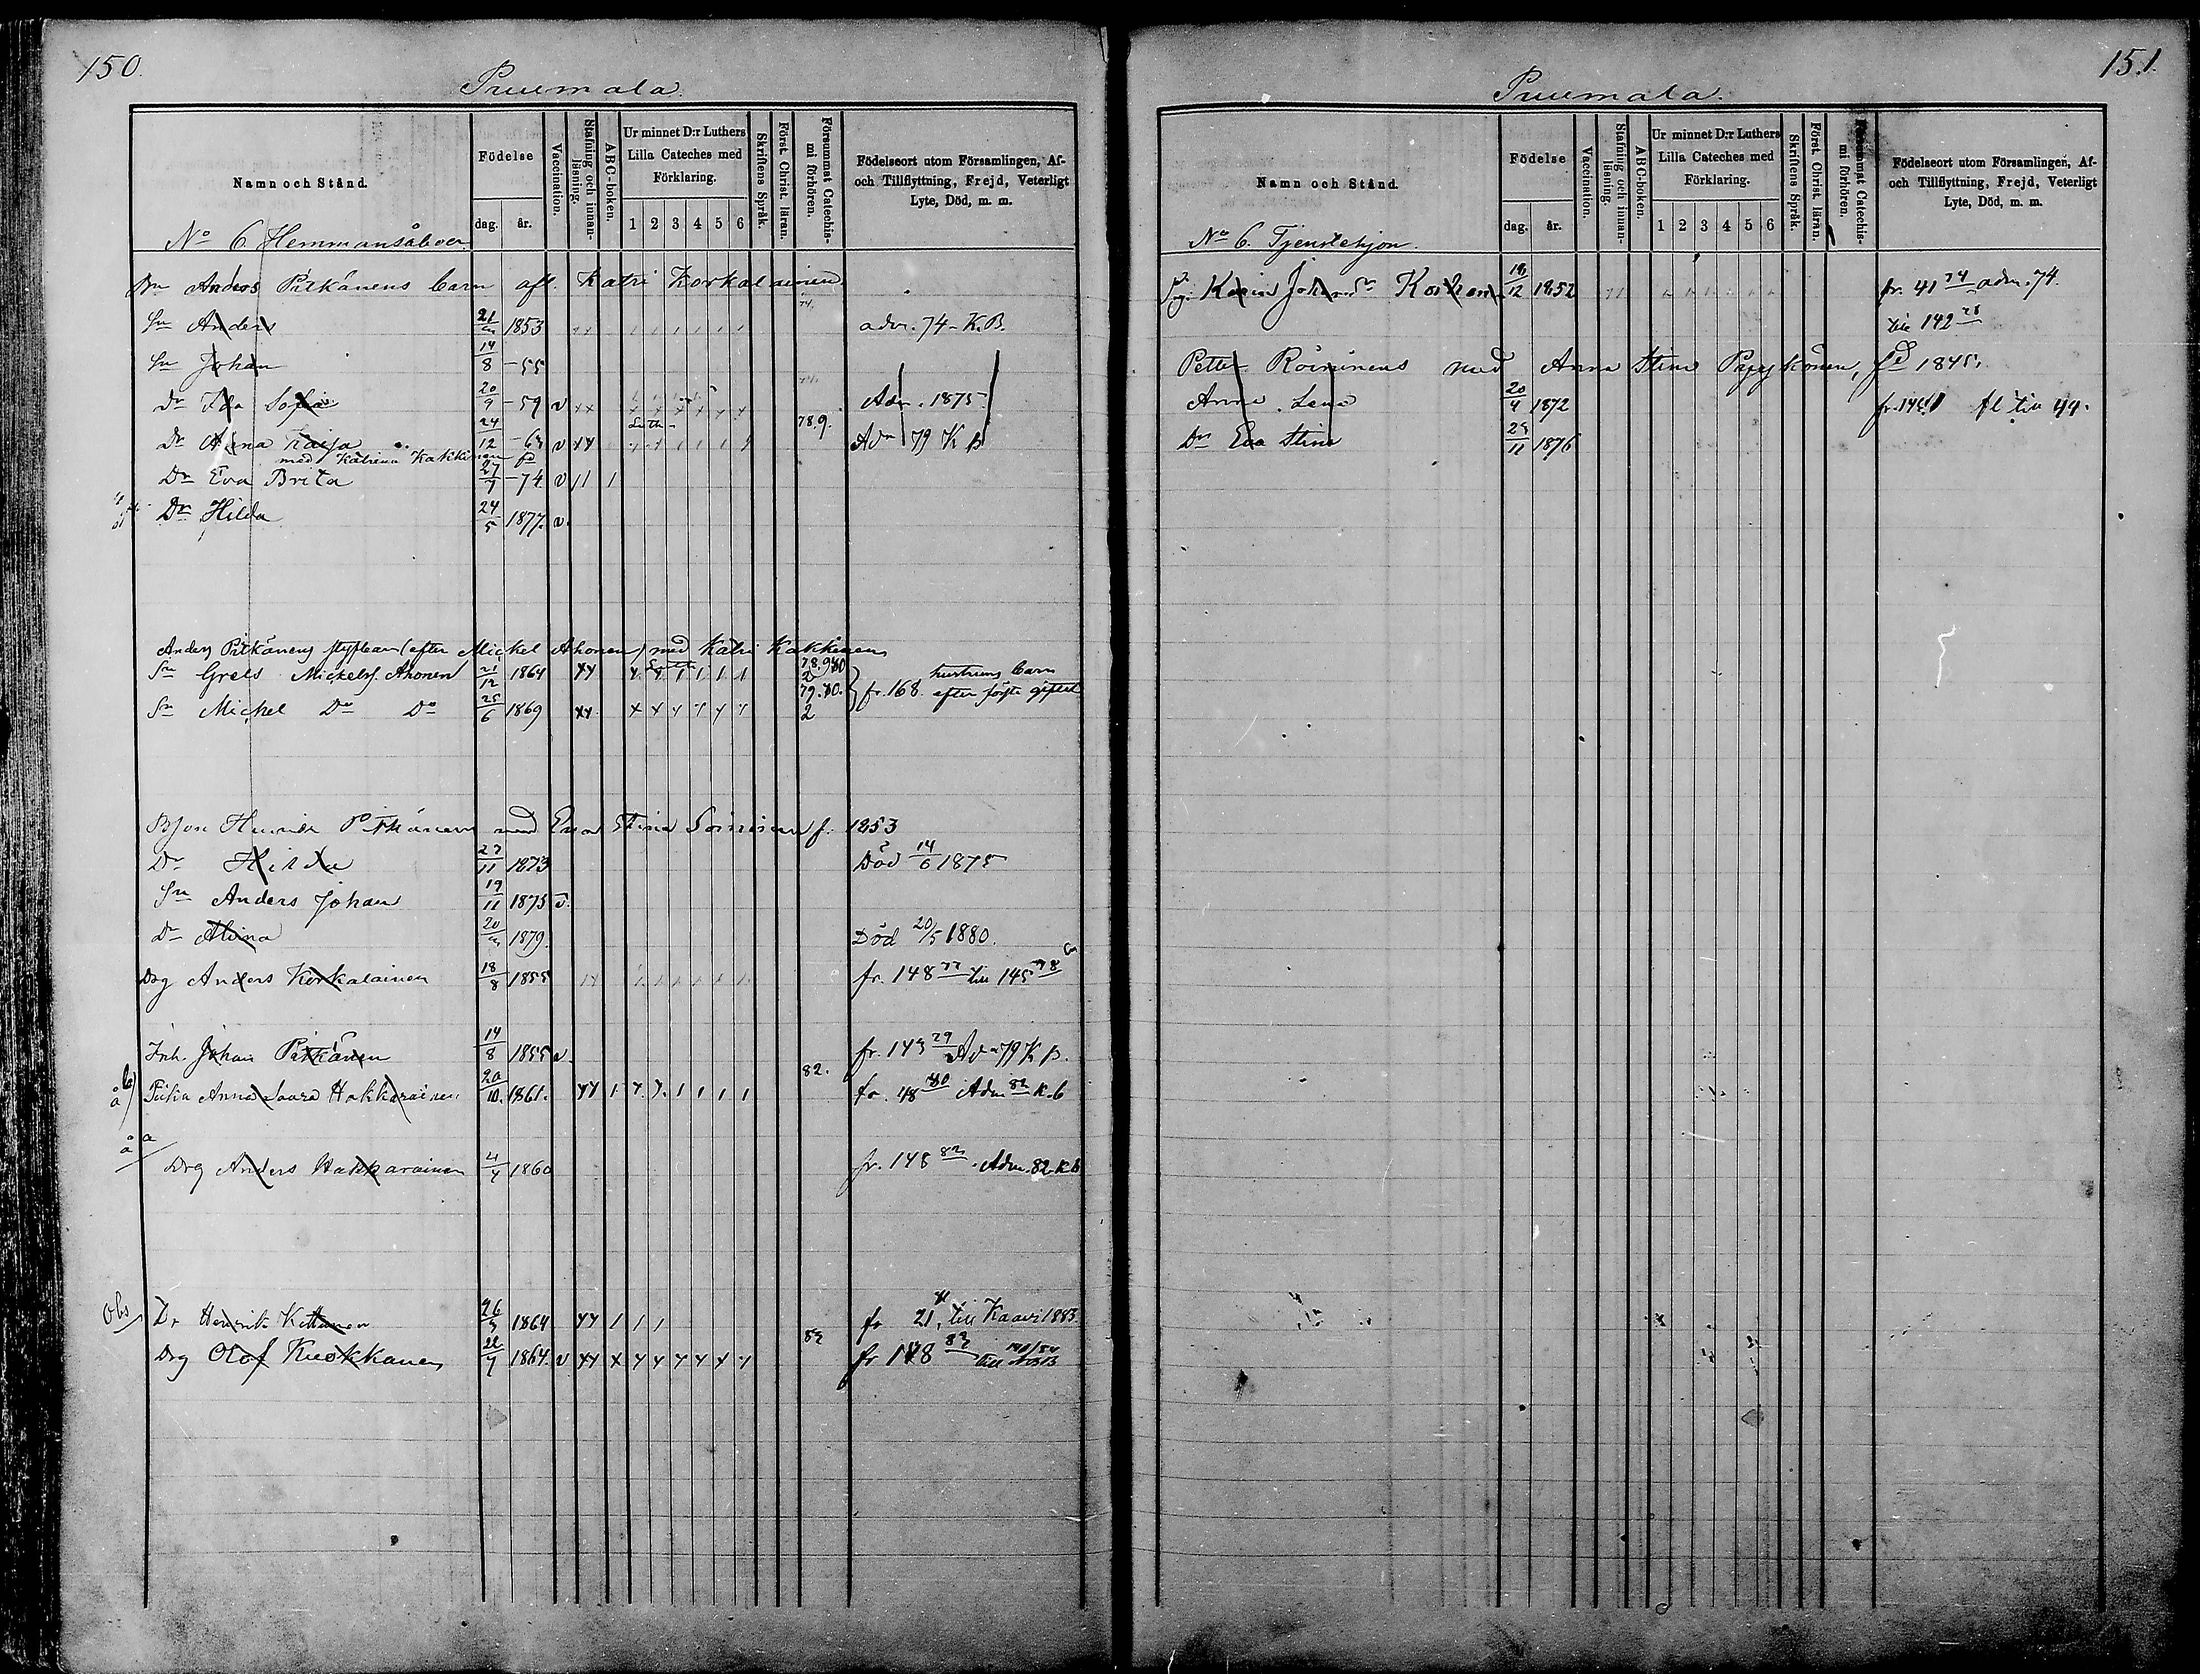 150.
Puumala.
Namn och Stånd.
Födelse
dag.
år.
Vaccination.
Stafning och innanläsning.
ABC-boken.
Ur minnet D:r Luthers Lilla Cateches med Förklaring.
1 2 3 4 5 6
Skriftens Språk.
Först. Christ. läran.
Försummat Catechismi förhören.
Födelseort utom Församlingen, Af- och Tillflyttning, Frejd, Veterligt Lyte, Död, m. m.
No 6 Hemmansåboer
Bn Anders Pitkänens barn aft. Katri Korkalainen
Sn Anders 21 1853 adm. 74 - K. B.
Sn Johan 14/8 - 55
Dr Ida Sofia 20/9 - 59 v xx Adm. 1875
Dr Anna Kaisa 24/12 - 63 v xy 78.9. Adm 79 K B
med Katrina Kakkinen fd
Dr Eva Brita 27/7 - 74 v 11 1
Dr Hilda 24/5 1877. v.
Anders Pitkänens styfbarn (efter Mickel Ahonen) med Katri Kakkinen
Sn Grels Mickelss. Ahonen 21/12 1864 xy 78.9.80 2 hustruns barn
Sn Mickel Do Do 25/6 1869 xy x x y y y y 79.80. 2 fr. 168 efter förste giftet
Henrik Pitkänen med Eva Stina Soininen f. 1853
Dr Hilda 23/11 1873 Död 14/6 1875
Sn Anders Johan 19/11 1875 v.
Dr Alvina 20 1879. Död 20/5 1880.
Drg Anders Korkalainen 18/8 1855 fr. 148 77 till 145 78
Inh. Johan Pitkänen 14/8 1855 v fr. 143 79 Adm 79 K B.
Piika Anna Saara Hakkarainen 20/10. 1861. yy 1 82. fr. 48 80 Adm 82 K. B
Drg Anders Hakkarainen 4/4 1860 fr. 148 82. Adm. 82 K B
Obs
Dr Henrik Kettunen 26/5 1864 yy 1 1 1 fr 21 till Kaavi 1883.
Drg Olof Kuokkanen 22/7 1864. v xy x y y y y x y 82 fr 148 82 till
151.
Puumala.
Namn och Stånd.
Födelse
dag.
år.
Vaccination.
Stafning och innanläsning.
ABC-boken.
Ur minnet D:r Luthers Lilla Cateches med Förklaring.
1 2 3 4 5 6
Skriftens Språk.
Först. Christ. läran.
Försummat Catechismi förhören.
Födelseort utom Församlingen, Af- och Tillflyttning, Frejd, Veterligt Lyte, Död, m. m.
No 6. Tjenstehjon.
Pig. Karin Johansdr 18/12 1852 fr. 41 74 adm. 74.
till 142 78
Petter Röininens med Anna Stina fd 1845.
Anna Lena 20/4 1872 fl till 44.
Dr Eva Stina 25/11 1876